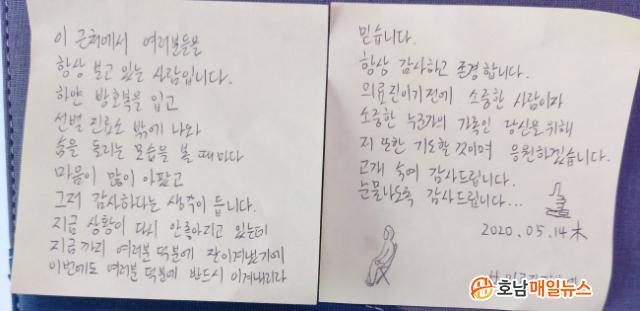 이 근처에서 여러분들을
항상 보고 있는 사람입니다.
하얀 방호복을 입고
선별 진료소 밖에 나와
숨을 돌리는 모습을 볼 때마다
마음이 많이 아팠고
그저 감사하다는 생각이 듭니다.
지금 상황이 다시 안좋아지고 있는데
지금까지 여러분 덕분에 잘 이겨냈기에
이번에도 여러분 덕분에 반드시 이겨내리라
믿습니다.
항상 감사하고 존경합니다.
의료진이기전에 소중한 사람이자
소중한 누군가의 가족인 당신을 위해
저 또한 기도할 것이며 응원하겠습니다.
고개 숙여 감사드립니다.
눈물나도록 감사드립니다...
2020.05.14 木
호남매일뉴스